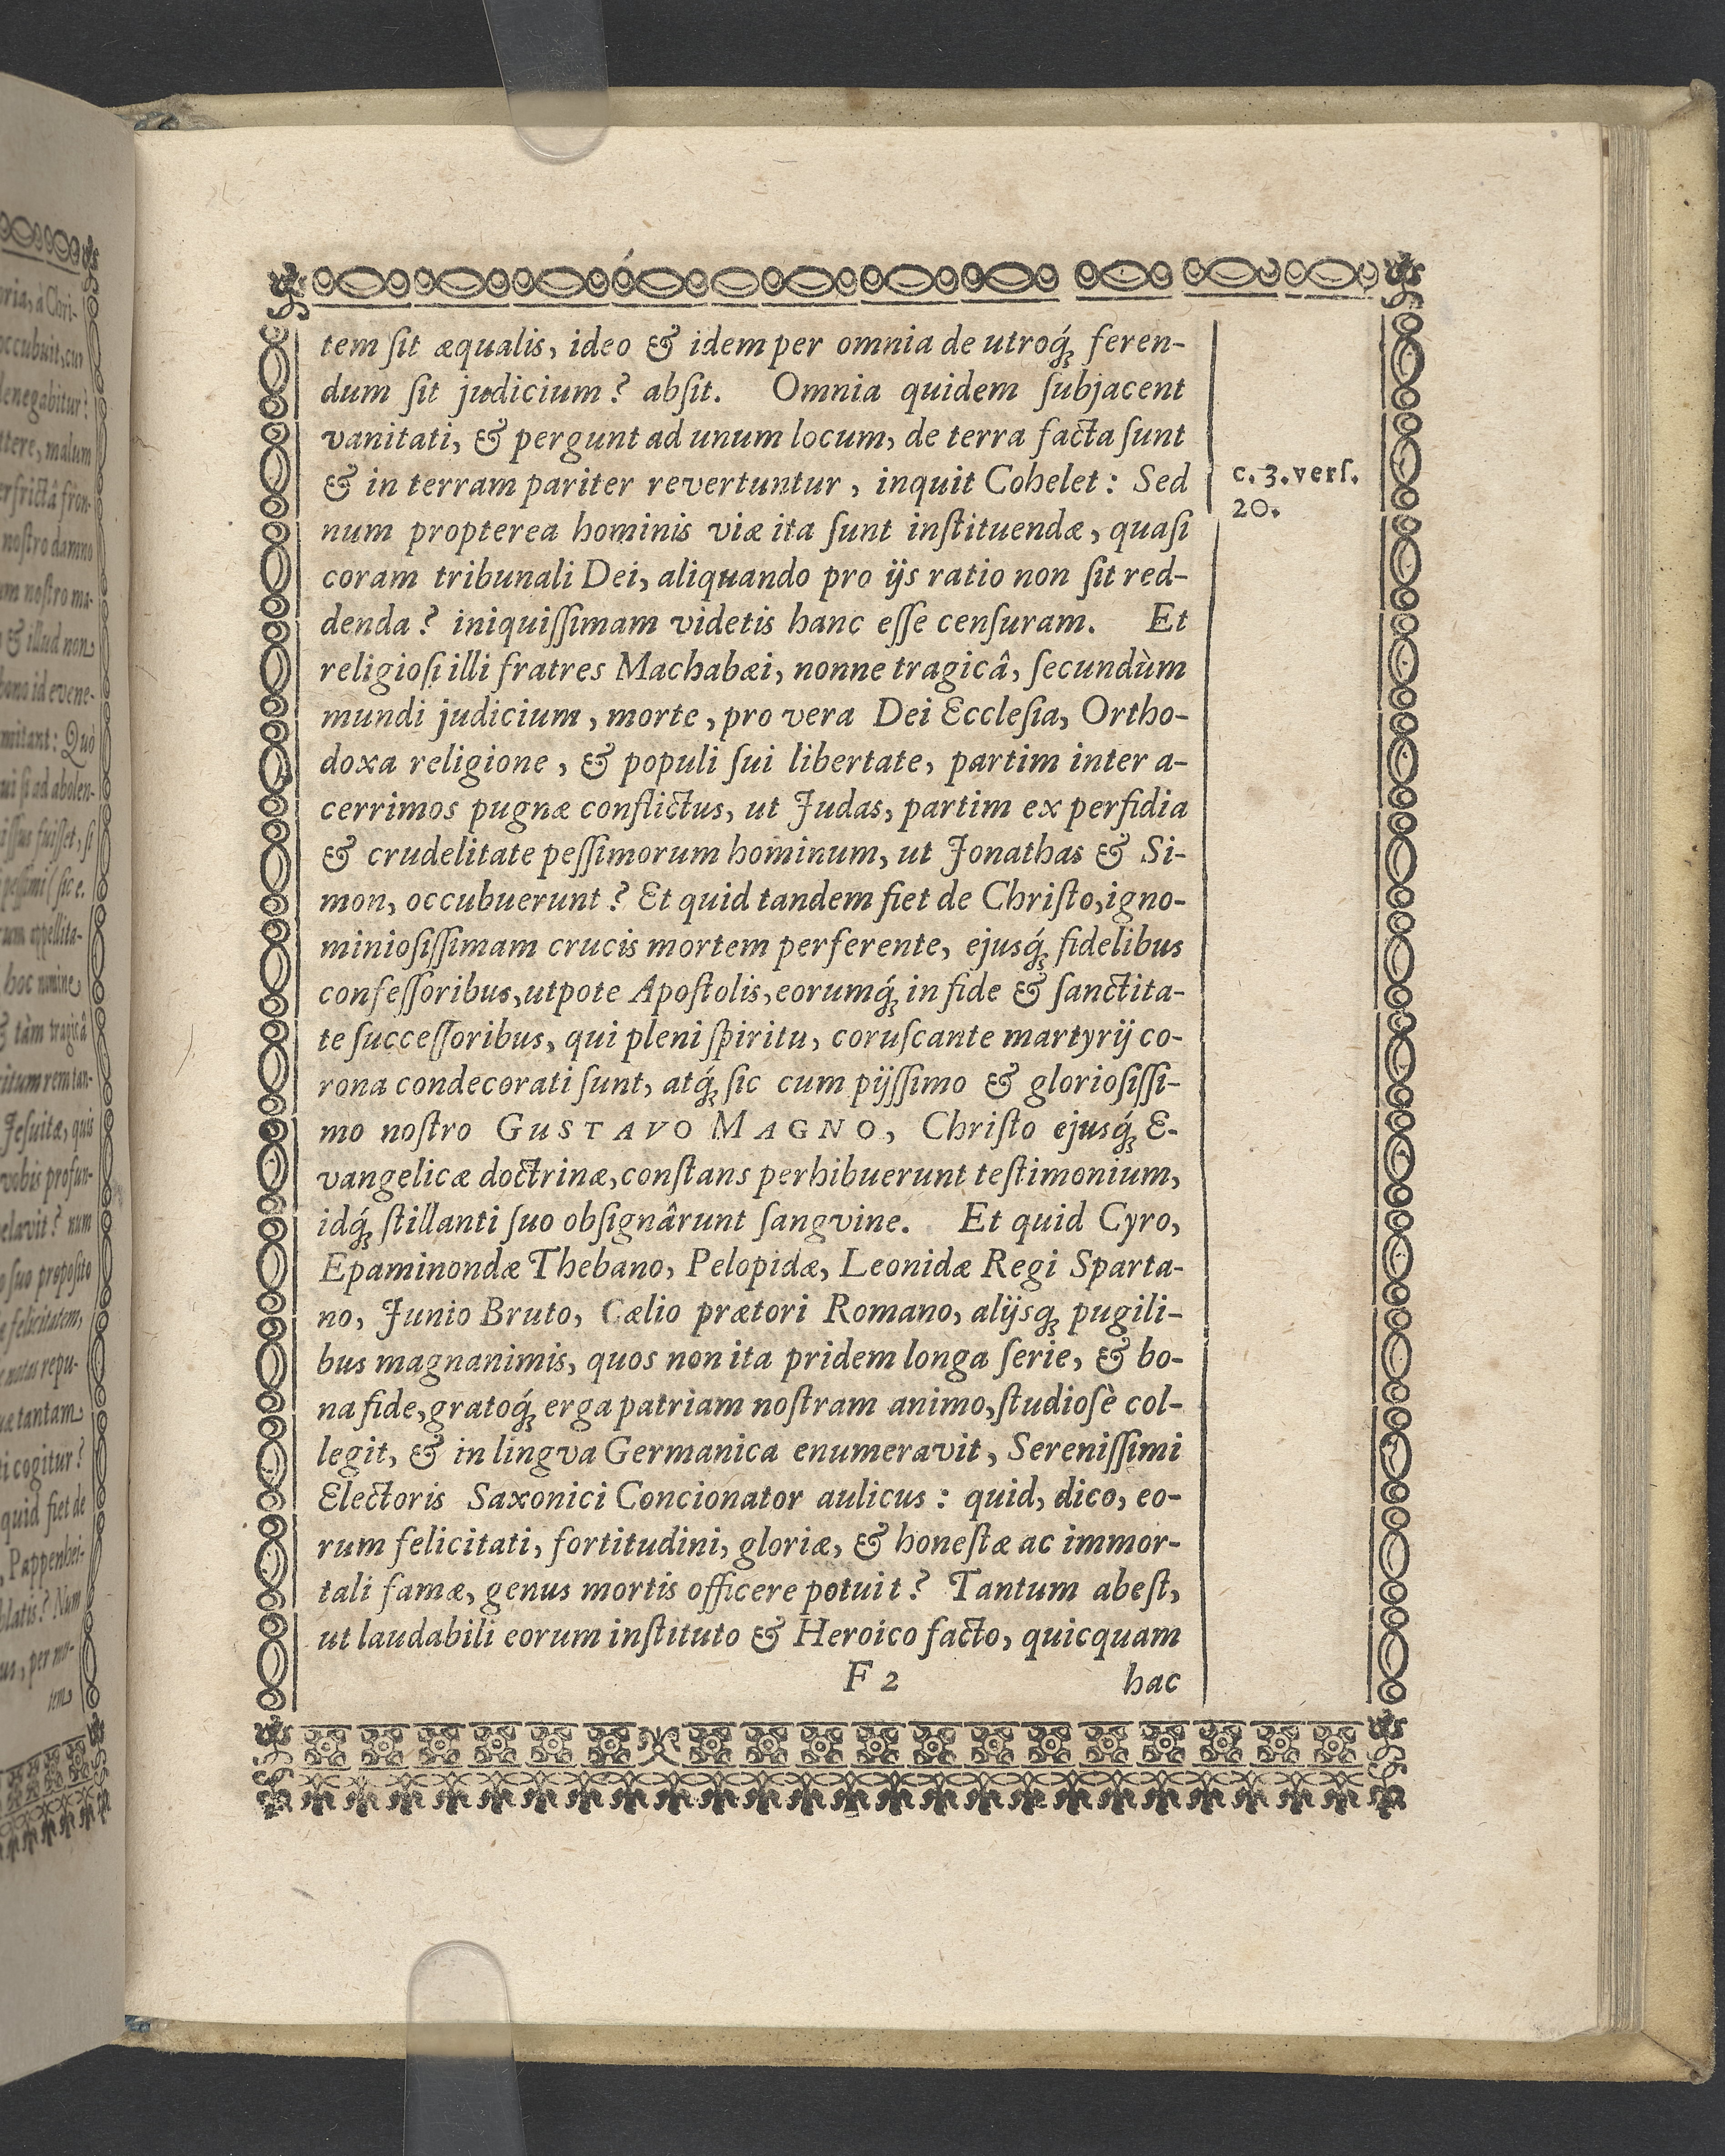 tem ſit æqualis, ideo & idem per omnia de utroq́ꝫ feren-
dum ſit judicium? abſit. Omnia quidem ſubjacent
vanitati, & pergunt ad unum locum, de terra facta ſunt
& in terram pariter revertuntur, inquit Cohelet: Sed
c. 3. verſ.
20.
num propterea hominis viæ ita ſunt inſtituendæ, quaſi
coram tribunali Dei, aliquando pro ijs ratio non ſit red-
denda? iniquiſſimam videtis hanc eſſe cenſuram. Et
religioſi illi fratres Machabæi, nonne tragicâ, ſecundùm
mundi judicium, morte, pro vera Dei Eccleſia, Ortho-
doxa religione, & populi ſui libertate, partim inter a-
cerrimos pugnæ conflictus, ut Judas, partim ex perfidia
& crudelitate peſſimorum hominum, ut Jonathas & Si-
mon, occubuerunt? Et quid tandem fiet de Chriſto, igno-
minioſiſſimam crucis mortem perferente, ejusq́ꝫ fidelibus
confeſſoribus, utpote Apoſtolis, eorumq́ꝫ in fide & ſanctita-
te ſucceſſoribus, qui pleni ſpiritu, coruſcante martyrij co-
rona condecorati ſunt, atq́ꝫ ſic cum pijſſimo & glorioſiſſi-
mo noſtro GUSTAVO MAGNO, Chriſto ejusq́ꝫ E-
vangelicæ doctrinæ, conſtans perhibuerunt teſtimonium,
idq́ꝫ ſtillanti ſuo obſignârunt ſangvine. Et quid Cyro,
Epaminondæ Thebano, Pelopidæ, Leonidæ Regi Sparta-
no, Junio Bruto, Cælio prætori Romano, alijsqꝫ pugili-
bus magnanimis, quos non ita pridem longa ſerie, & bo-
na fide, gratoq́ꝫ erga patriam noſtram animo, ſtudioſè col-
legit, & in lingva Germanica enumeravit, Sereniſſimi
Electoris Saxonici Concionator aulicus: quid, dico, eo-
rum felicitati, fortitudini, gloriæ, & honeſtæ ac immor-
tali famæ, genus mortis officere potuit? Tantum abeſt,
ut laudabili eorum inſtituto & Heroico facto, quicquam
F 2 hac